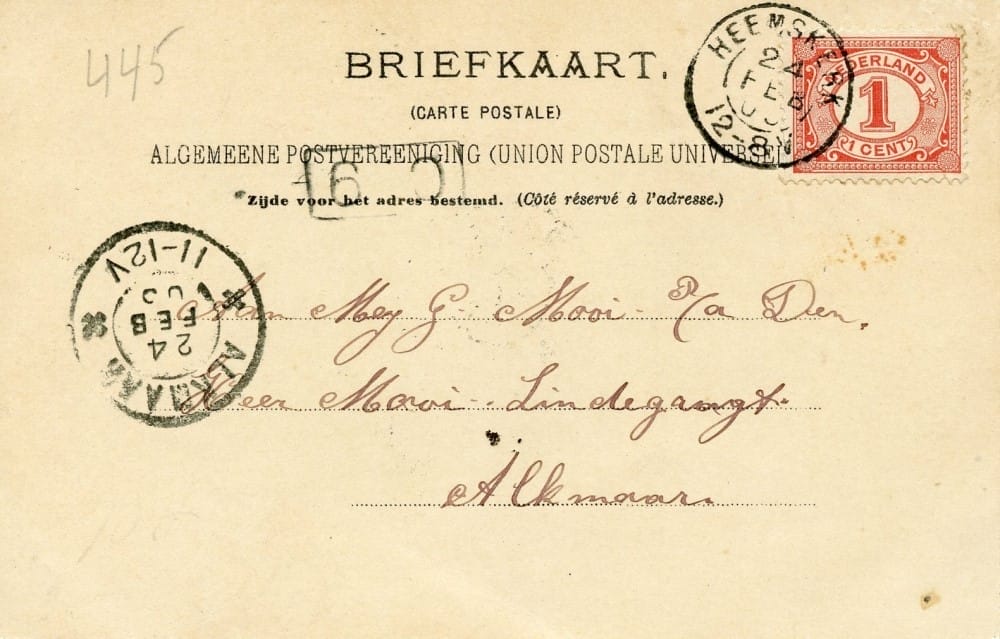 445
BRIEFKAART.
(CARTE POSTALE)
ALGEMEENE POSTVEREENIGING (UNION POSTALE UNIVERSE
Zijde voor het adres bestemd. (Côté réservé à l'adresse.)
HEEMSKERK
24
FEB
12-8V
NEDERLAND
1
1 CENT
ALKMAAR
24
FEB
03
11-12V
Aan Mej G. Mooi P/a Den
Heer Mooi - Lindegragt
Alkmaar